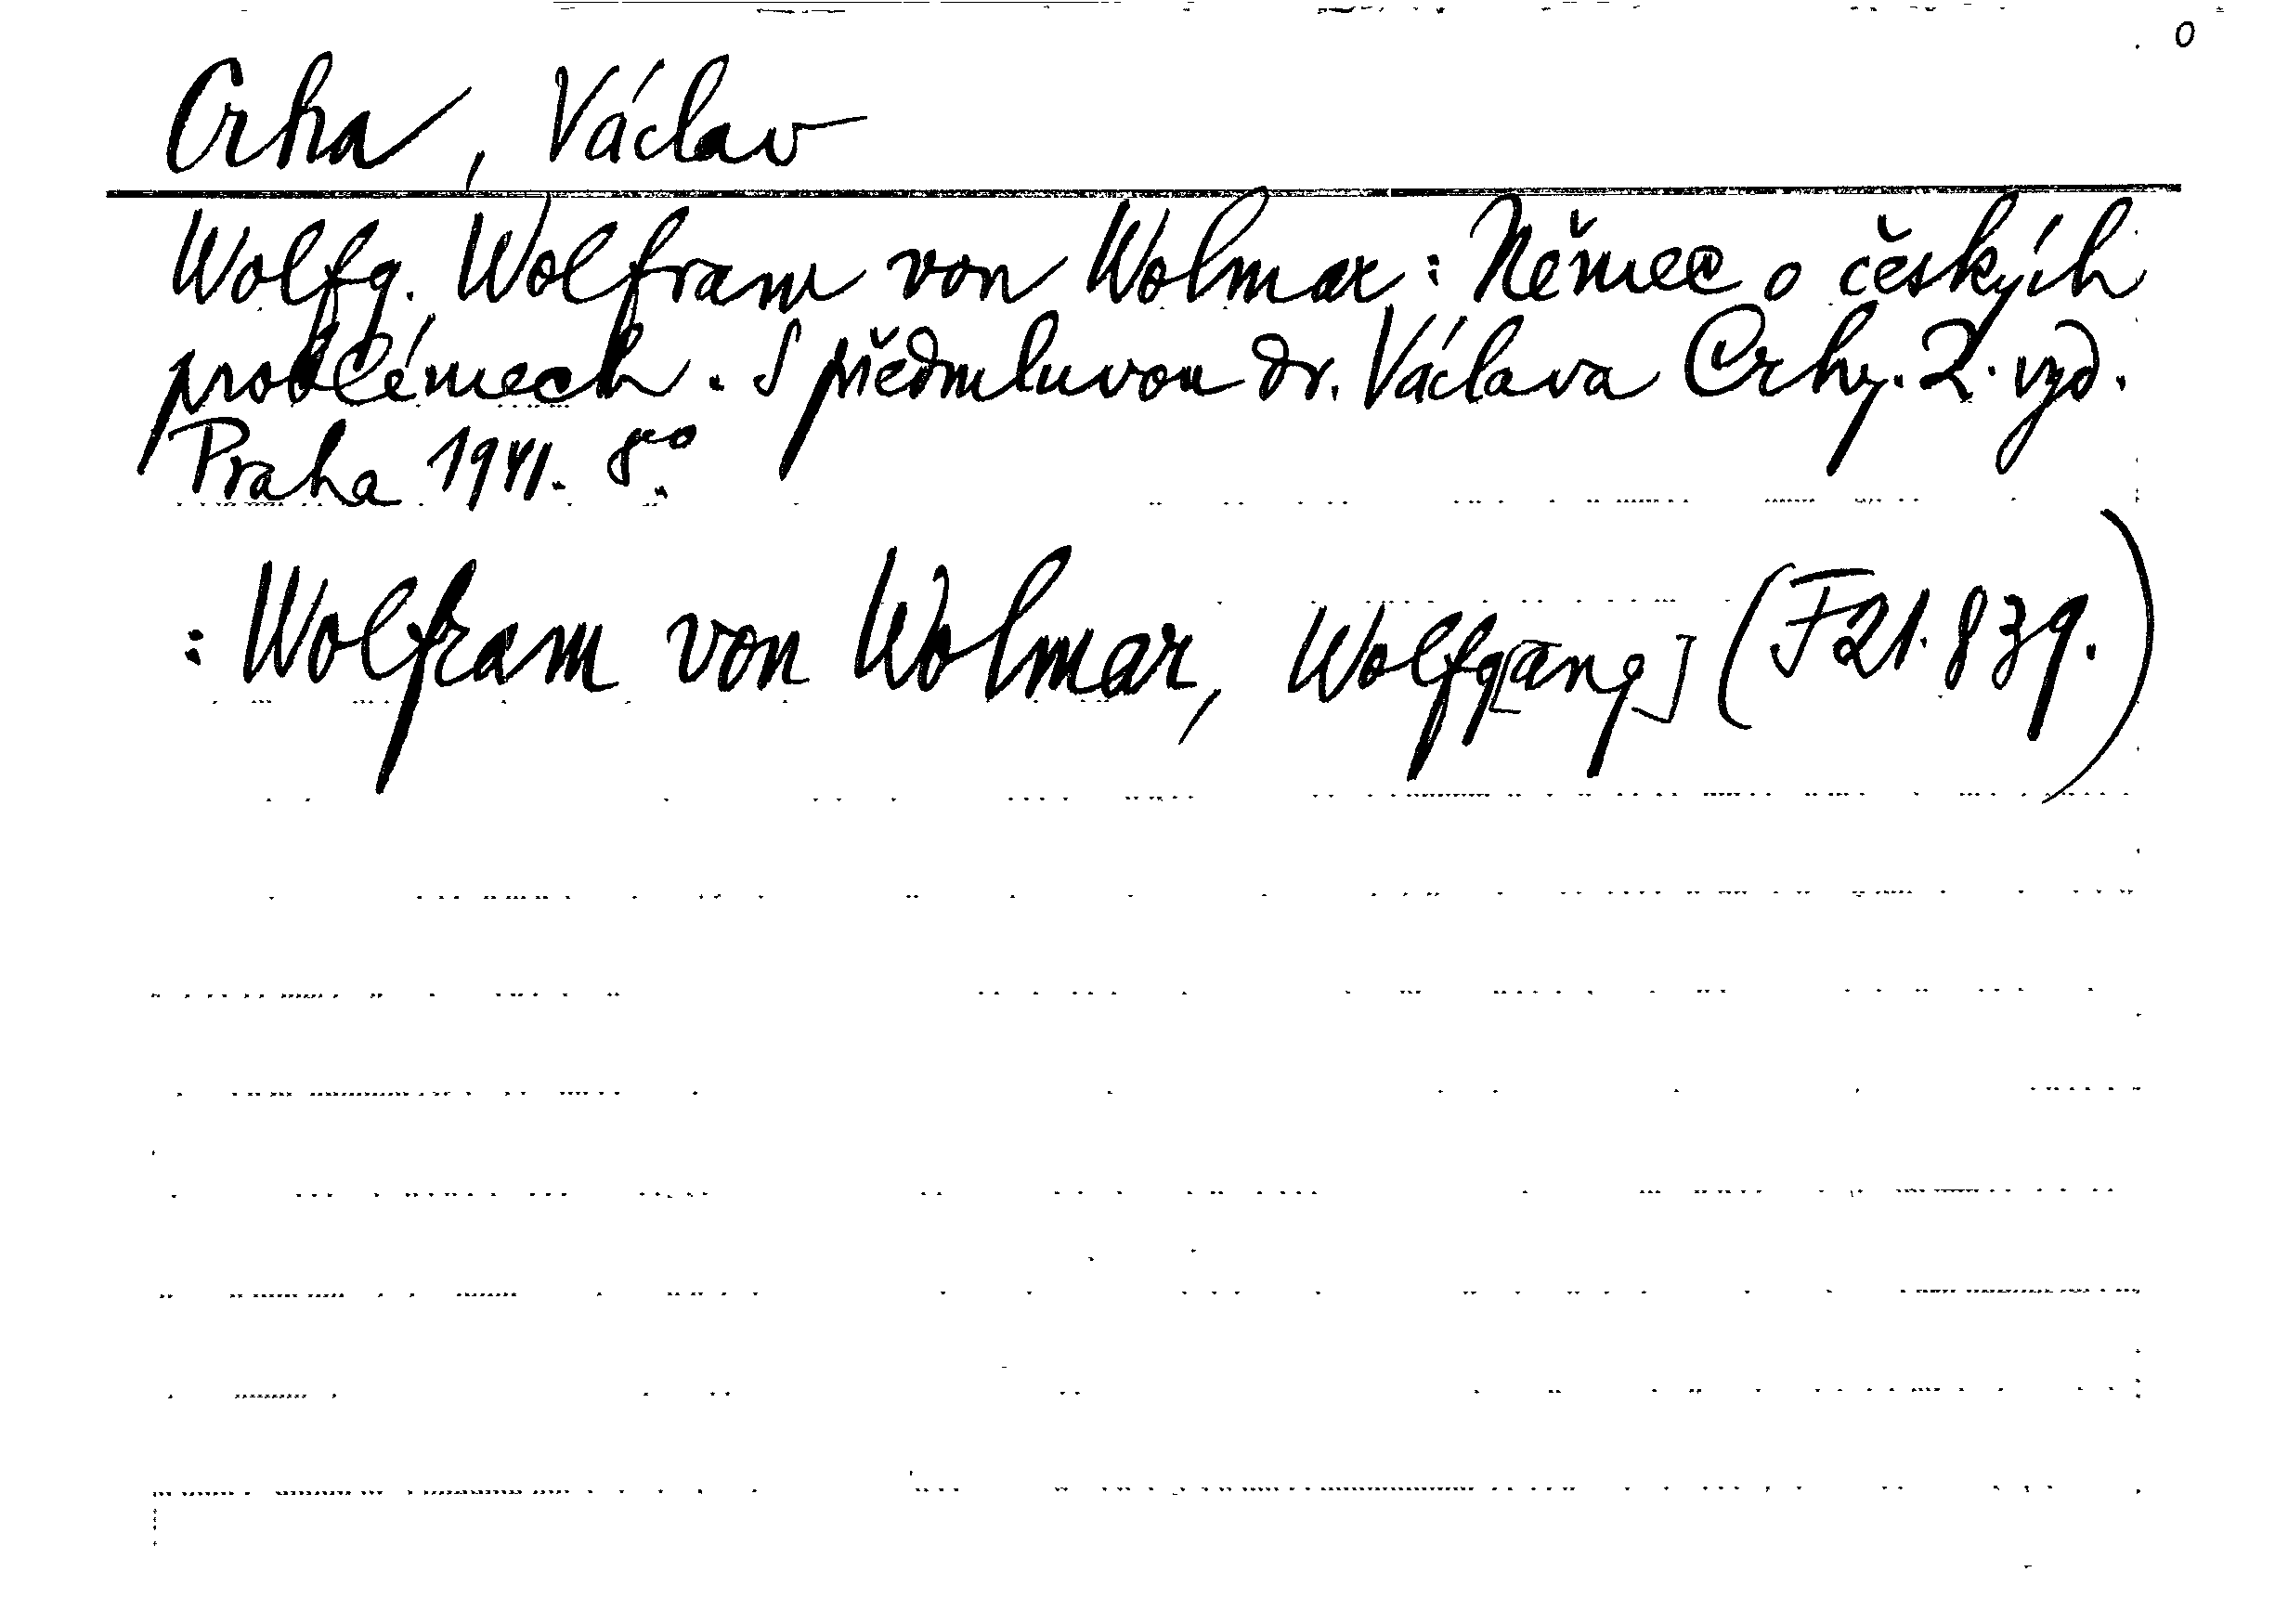 o
Crha, Václav
Wolfg. Wolfram von Wolmar: Němec o českých
problémech. S předmluvou dr. Václava Crhy. 2. vyd.
Praha 1941. 8°.
: Wolfram von Wolmar, Wolfg[ang] (F21.839.)